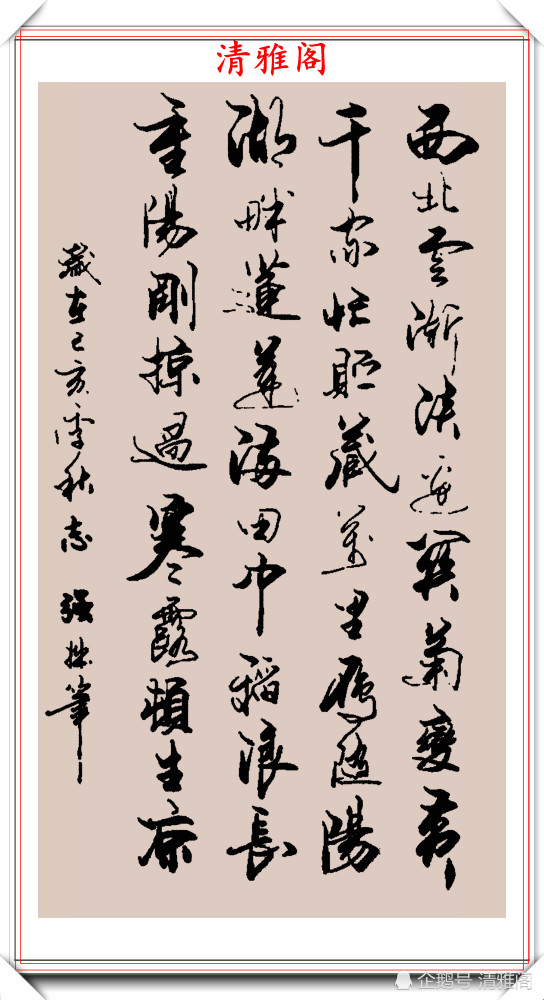 清雅阁
西北雲漸淡邊關菊變黃
千家忙貯藏萬里雁隨陽
湖畔蓮蓬滿田中稻浪長
重陽剛掠過寒露頓生凉
歲在己亥季秋志强拙筆
企鹅号 清雅阁